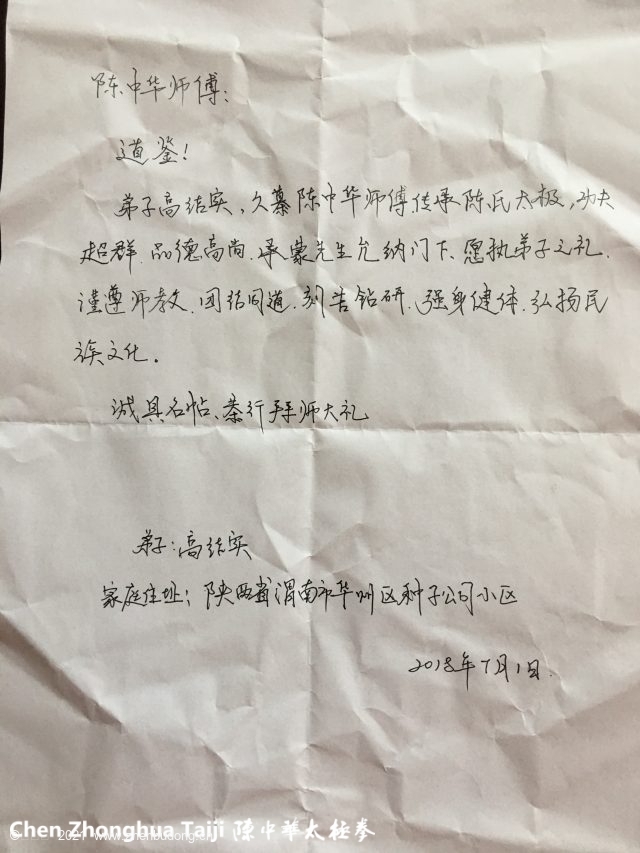 陈中华师傅：
道鉴！
弟子高结实，久慕陈中华师傅传承陈氏太极，功夫
超群、品德高尚、承蒙先生允纳门下、愿执弟子之礼、
谨遵师教、团结同道、刻苦钻研、强身健体、弘扬民
族文化。
诚具名帖、恭行拜师大礼
弟子：高结实
家庭住址：陕西省渭南市华州区种子公司小区
2018年7月1日.
Chen Zhonghua Taiji 陳中華太極拳